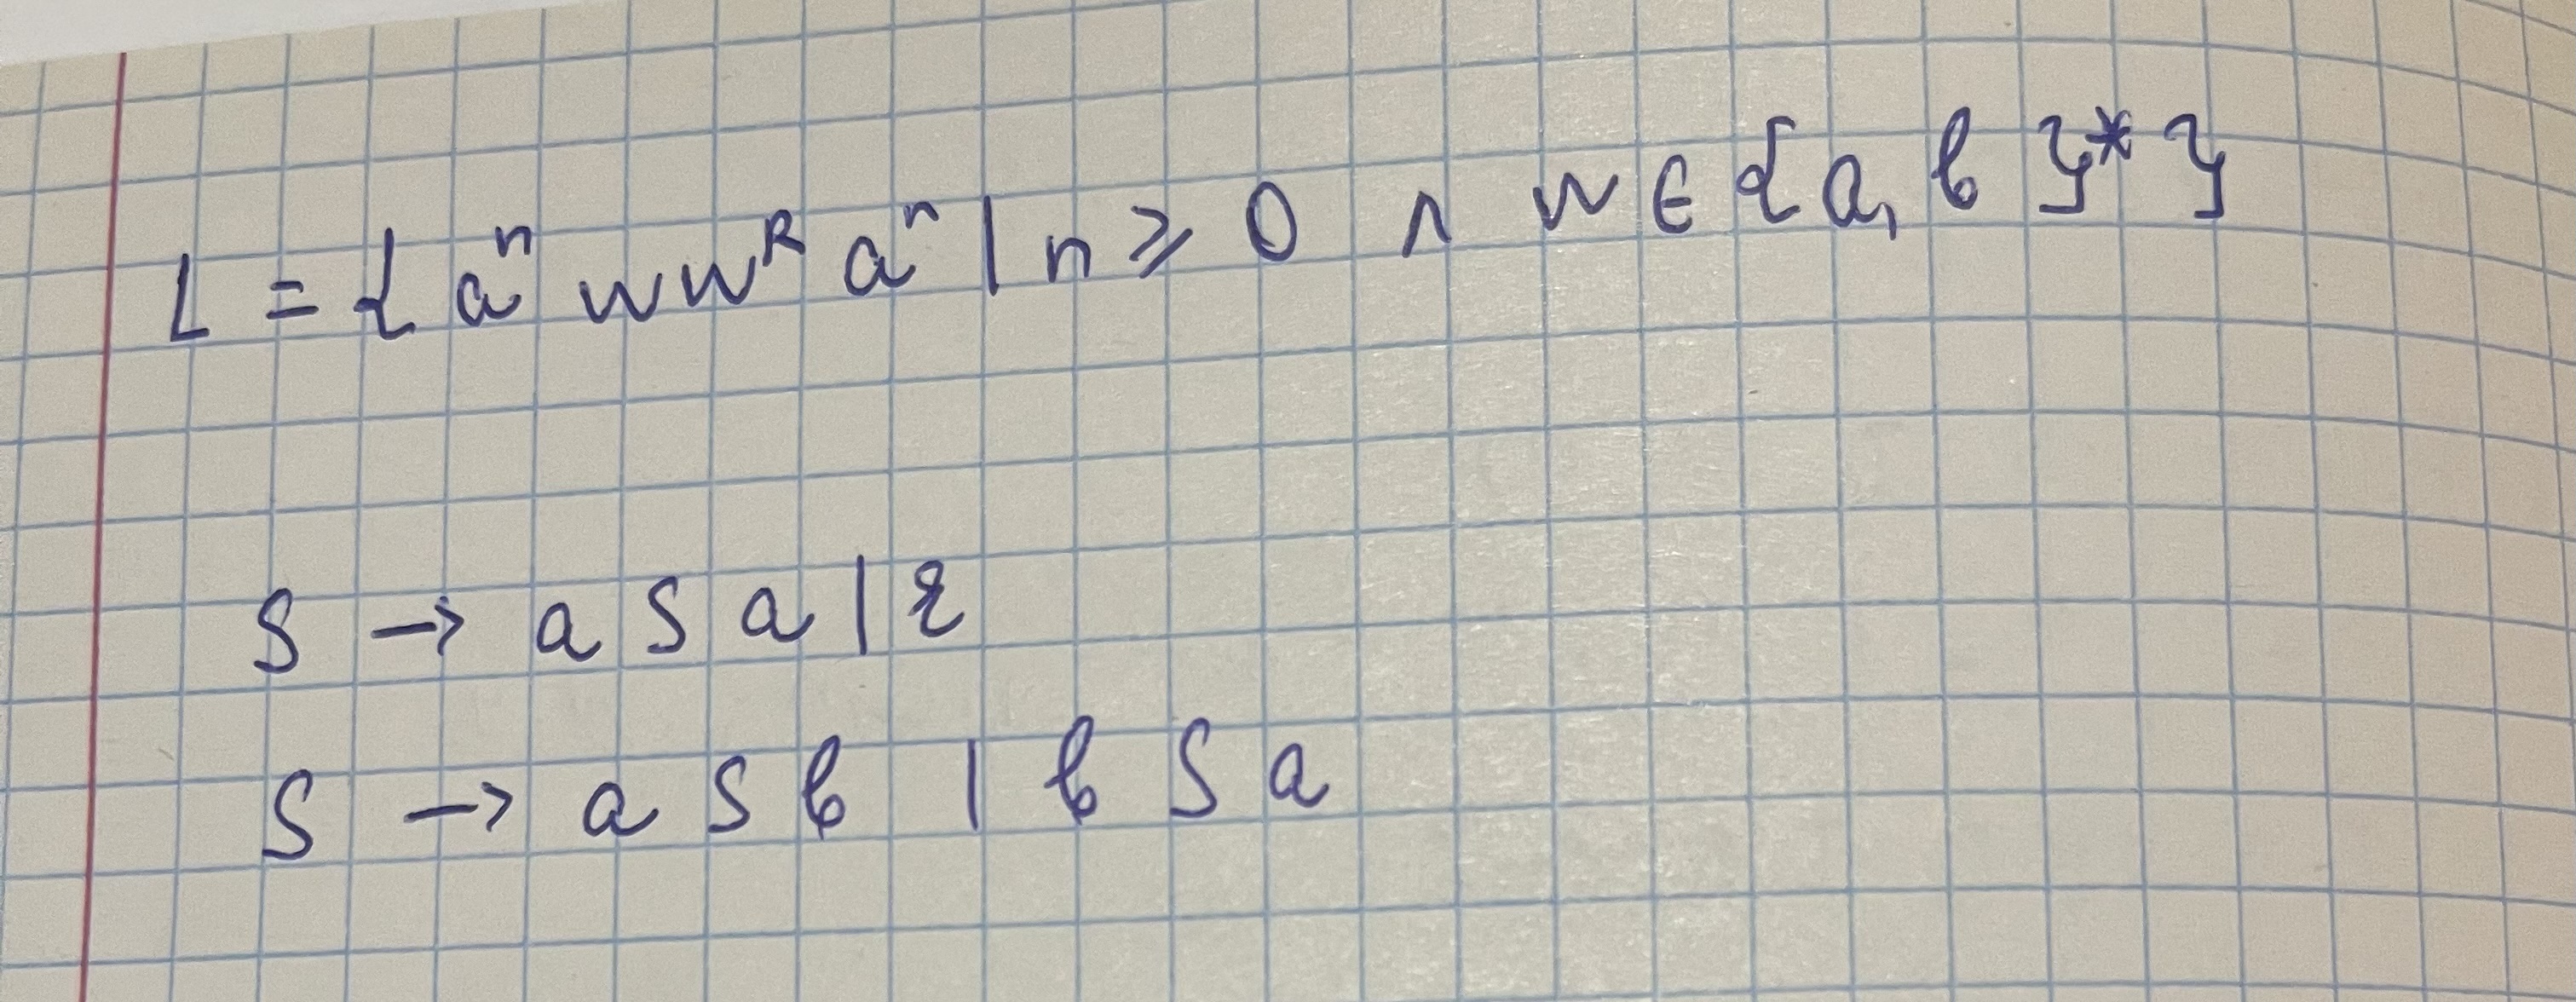 L = { aⁿ w wᴿ aⁿ | n ≥ 0 ∧ w ∈ {a, b}* }
S → a S a | ε
S → a S b | b S a